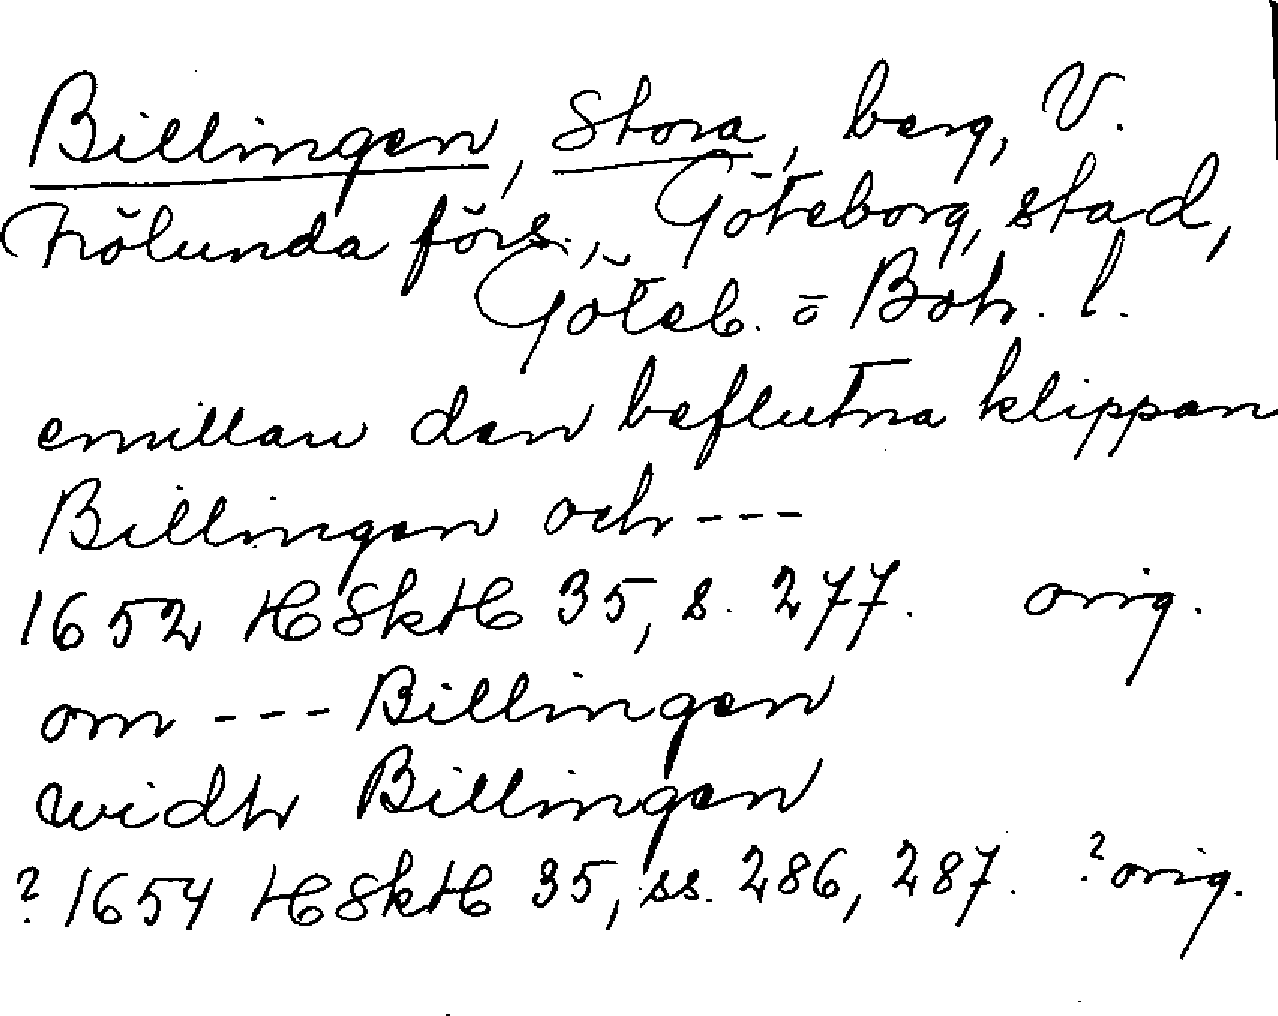 Billingen, Stora, berg, V.
Frölunda förs., Göteborg, stad,
Göteb. o Boh. l.
emillan den beflutna klippan
Billingen och ---
1652 HSkH 35, s. 277. orig.
om --- Billingen
widh Billingen
? 1654 HSkH 35, ss. 286, 287. ? orig.